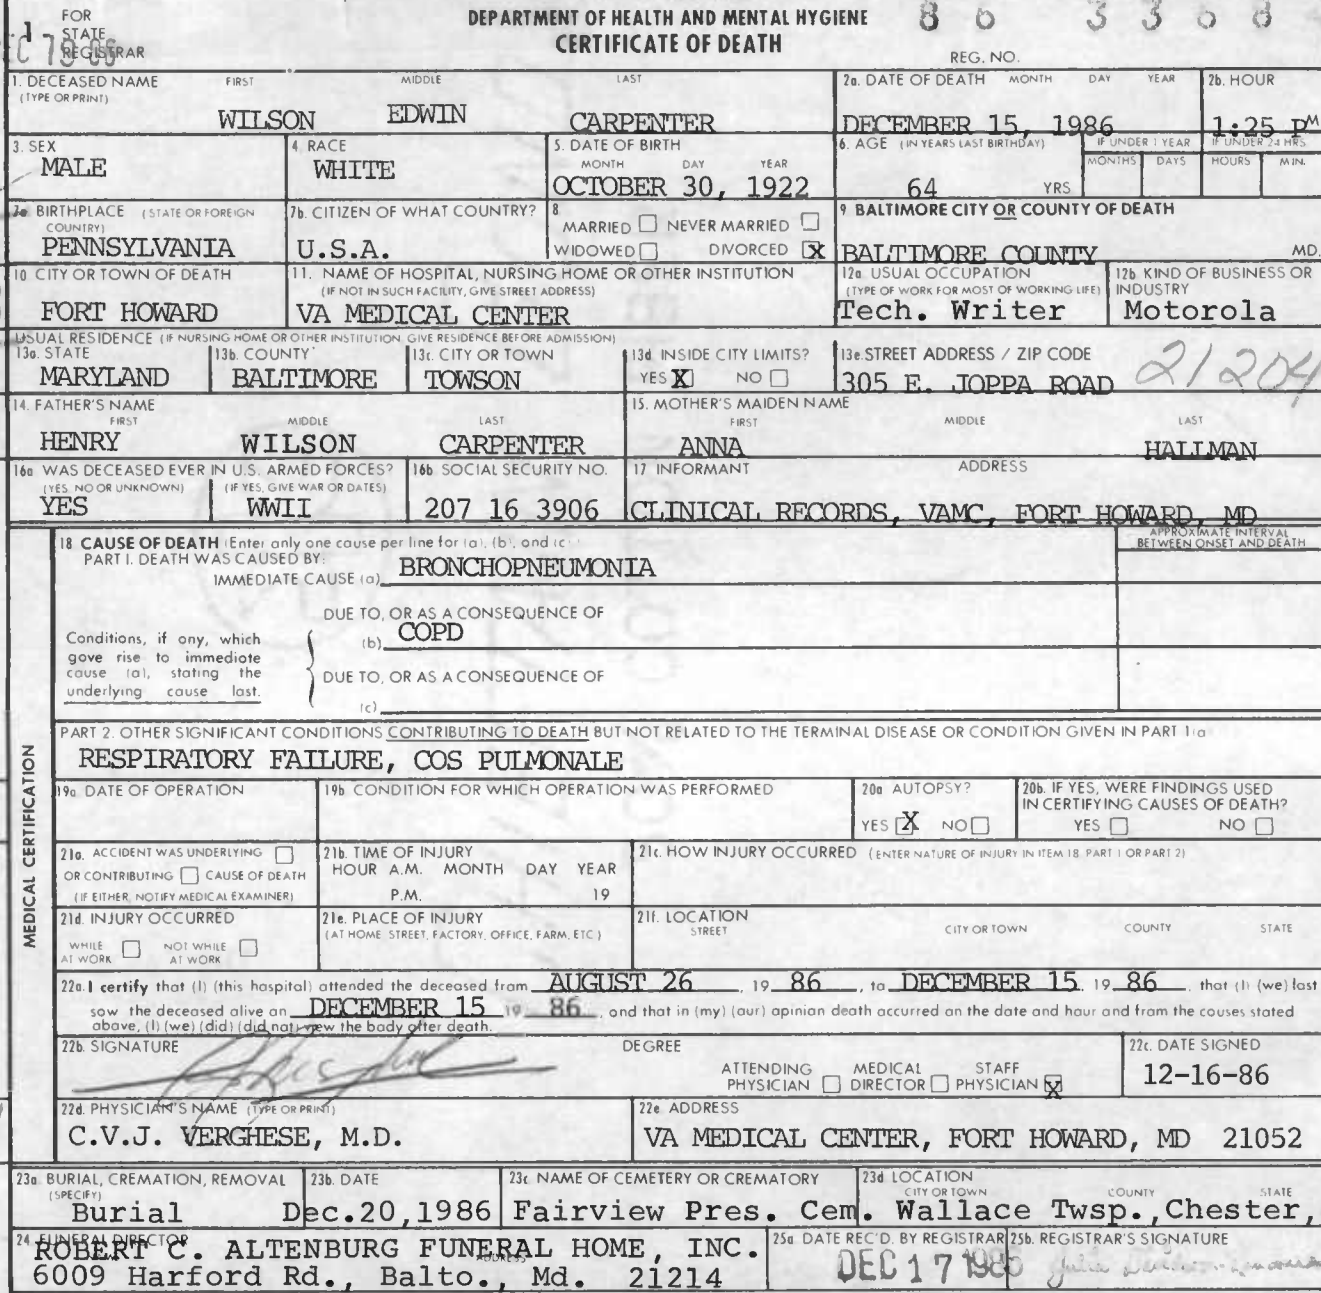 FOR
STATE
REGISTRAR
DEPARTMENT OF HEALTH AND MENTAL HYGIENE
CERTIFICATE OF DEATH
REG. NO.
1. DECEASED NAME FIRST MIDDLE LAST
(TYPE OR PRINT)
WILSON EDWIN CARPENTER
2a. DATE OF DEATH MONTH DAY YEAR
DECEMBER 15, 1986
2b. HOUR
1:25 PM
3. SEX
MALE
4. RACE
WHITE
5. DATE OF BIRTH
MONTH DAY YEAR
OCTOBER 30, 1922
6. AGE (IN YEARS LAST BIRTHDAY)
64 YRS
IF UNDER 1 YEAR
MONTHS DAYS
IF UNDER 24 HRS
HOURS MIN.
7a BIRTHPLACE (STATE OR FOREIGN
COUNTRY)
PENNSYLVANIA
7b. CITIZEN OF WHAT COUNTRY?
U.S.A.
8.
MARRIED NEVER MARRIED
WIDOWED DIVORCED X
9 BALTIMORE CITY OR COUNTY OF DEATH
BALTIMORE COUNTY MD.
10 CITY OR TOWN OF DEATH
FORT HOWARD
11. NAME OF HOSPITAL, NURSING HOME OR OTHER INSTITUTION
(IF NOT IN SUCH FACILITY, GIVE STREET ADDRESS)
VA MEDICAL CENTER
12a USUAL OCCUPATION
(TYPE OF WORK FOR MOST OF WORKING LIFE)
Tech. Writer
12b KIND OF BUSINESS OR
INDUSTRY
Motorola
USUAL RESIDENCE (IF NURSING HOME OR OTHER INSTITUTION GIVE RESIDENCE BEFORE ADMISSION)
13a. STATE
MARYLAND
13b. COUNTY
BALTIMORE
13c. CITY OR TOWN
TOWSON
13d INSIDE CITY LIMITS?
YES X NO
13e. STREET ADDRESS / ZIP CODE
305 E. JOPPA ROAD 21204
14. FATHER'S NAME
FIRST MIDDLE LAST
HENRY WILSON CARPENTER
15. MOTHER'S MAIDEN NAME
FIRST MIDDLE LAST
ANNA HALLMAN
16a WAS DECEASED EVER IN U.S. ARMED FORCES?
(YES, NO OR UNKNOWN) (IF YES, GIVE WAR OR DATES)
YES WWII
16b SOCIAL SECURITY NO.
207 16 3906
17 INFORMANT ADDRESS
CLINICAL RECORDS, VAMC, FORT HOWARD, MD
MEDICAL CERTIFICATION
18 CAUSE OF DEATH (Enter only one cause per line for (a), (b), and (c)
PART I. DEATH WAS CAUSED BY:
IMMEDIATE CAUSE (a) BRONCHOPNEUMONIA
APPROXIMATE INTERVAL
BETWEEN ONSET AND DEATH
DUE TO, OR AS A CONSEQUENCE OF
(b) COPD
Conditions, if any, which
gave rise to immediate
cause (a), stating the
underlying cause last.
DUE TO, OR AS A CONSEQUENCE OF
(c)
PART 2. OTHER SIGNIFICANT CONDITIONS CONTRIBUTING TO DEATH BUT NOT RELATED TO THE TERMINAL DISEASE OR CONDITION GIVEN IN PART 1 a
RESPIRATORY FAILURE, COS PULMONALE
19a DATE OF OPERATION
19b CONDITION FOR WHICH OPERATION WAS PERFORMED
20a AUTOPSY?
YES X NO
20b. IF YES, WERE FINDINGS USED
IN CERTIFYING CAUSES OF DEATH?
YES NO
21a. ACCIDENT WAS UNDERLYING
OR CONTRIBUTING CAUSE OF DEATH
(IF EITHER, NOTIFY MEDICAL EXAMINER)
21b. TIME OF INJURY
HOUR A.M. MONTH DAY YEAR
P.M. 19
21c. HOW INJURY OCCURRED (ENTER NATURE OF INJURY IN ITEM 18 PART 1 OR PART 2)
21d. INJURY OCCURRED
WHILE AT WORK NOT WHILE AT WORK
21e. PLACE OF INJURY
(AT HOME STREET, FACTORY, OFFICE, FARM, ETC )
21f. LOCATION
STREET CITY OR TOWN COUNTY STATE
22a. I certify that (I) (this hospital) attended the deceased from AUGUST 26, 19 86, to DECEMBER 15, 19 86, that (I) (we) last
saw the deceased alive on DECEMBER 15 19 86, and that in (my) (our) opinion death occurred on the date and hour and from the causes stated
above, (I) (we) (did) (did not) view the body after death.
22b. SIGNATURE
DEGREE
ATTENDING PHYSICIAN MEDICAL DIRECTOR STAFF PHYSICIAN X
22c. DATE SIGNED
12-16-86
22d. PHYSICIAN'S NAME (TYPE OR PRINT)
C.V.J. VERGHESE, M.D.
22e ADDRESS
VA MEDICAL CENTER, FORT HOWARD, MD 21052
23a. BURIAL, CREMATION, REMOVAL
(SPECIFY)
Burial
23b. DATE
Dec.20,1986
23c NAME OF CEMETERY OR CREMATORY
Fairview Pres. Cem.
23d LOCATION
CITY OR TOWN COUNTY STATE
Wallace Twsp.,Chester,
24. FUNERAL DIRECTOR
ROBERT C. ALTENBURG FUNERAL HOME, INC.
ADDRESS
6009 Harford Rd., Balto., Md. 21214
25a DATE REC'D. BY REGISTRAR
DEC 17 1986
25b. REGISTRAR'S SIGNATURE